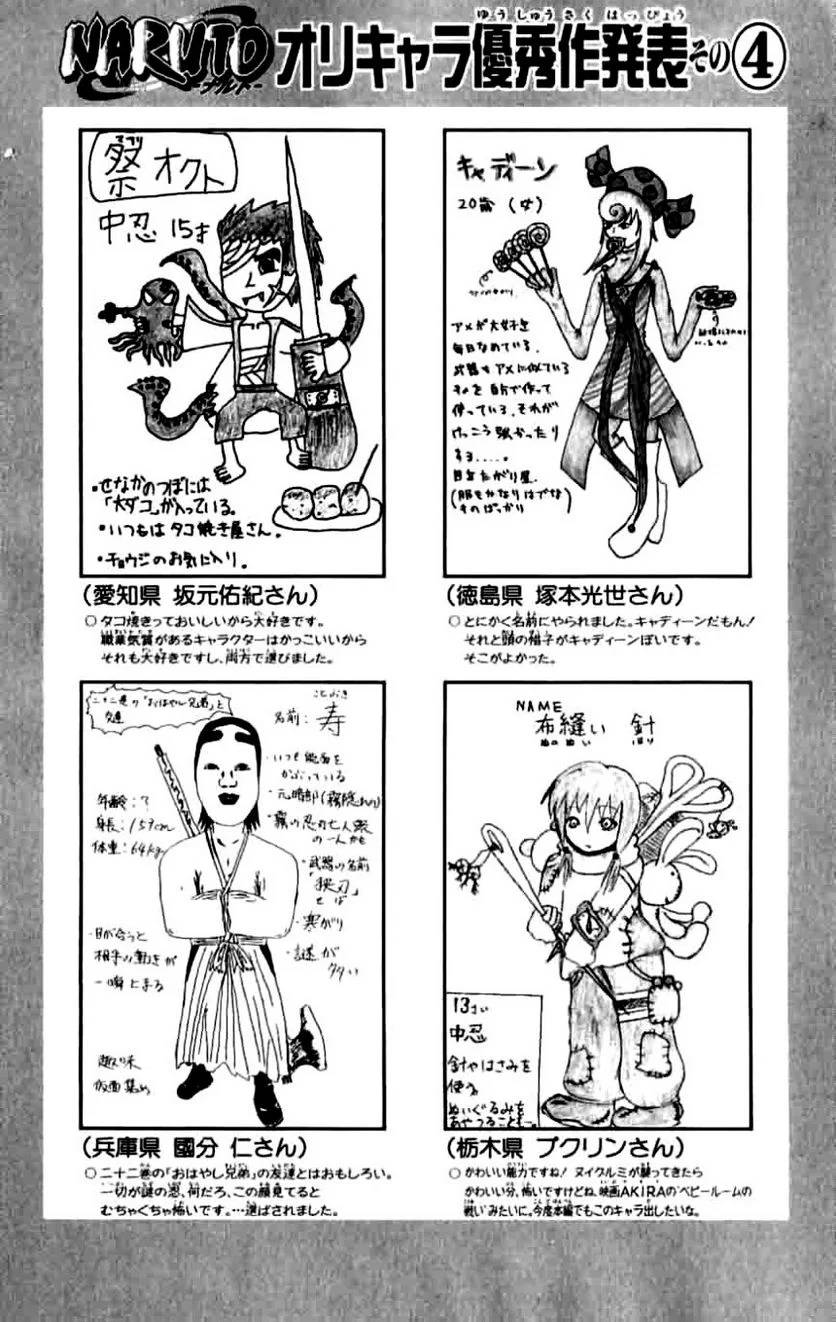 ゆうしゅうさくはっぴょう
NARUTO
-ナルト-
オリキャラ優秀作発表その④
祭 オクト
まつり
中忍 15才
・せなかのつぼには
「大ダコ」が入っている。
・いつもは タコ焼き屋さん。
・チョウジのお気に入り。
(愛知県 坂元佑紀さん)
○タコ焼きっておいしいから大好きです。
職業気質があるキャラクターはかっこいいから
それも大好きですし、両方で選びました。
キャディーン
20歳 (女)
アメが大好きで
毎日なめている。
武器もアメに似ている
ものを自分で作って
使っている。それが
けっこう強かったり
する……。
目立ちたがり屋。
(服もかなりはでな
ものばっかり)
(徳島県 塚本光世さん)
○とにかく名前にやられました。キャディーンだもん!
それと頭の帽子がキャディーンぽいです。
そこがよかった。
二十二巻の「おはやし兄弟」と
友達
ことぶき
名前:寿
・いつも能面を
かぶっている
・元暗部(霧隠れの)
・霧の忍刀七人衆
の一人かも
・武器の名前
「狭刃」
せば
・寒がり
・謎が
多い
年齢:?
身長:157cm
体重:64kg
・目が合うと
相手の動きが
一瞬止まる
趣味
仮面集め
(兵庫県 國分 仁さん)
○二十二巻の「おはやし兄弟」の友達とはおもしろい。
一切が謎の忍、何だろ、この顔見てると
むちゃくちゃ怖いです。…選ばれました。
NAME
布縫い 針
ぬの ぬい はり
13さい
中忍
針やはさみを
使う。
ぬいぐるみを
あやつることも…。
(栃木県 プクリンさん)
○かわいい能力ですね! ヌイグルミが襲ってきたら
かわいい分、怖いですけどね、映画AKIRAの“ベビールームの
戦い”みたいに。今度本編でもこのキャラ出したいな。